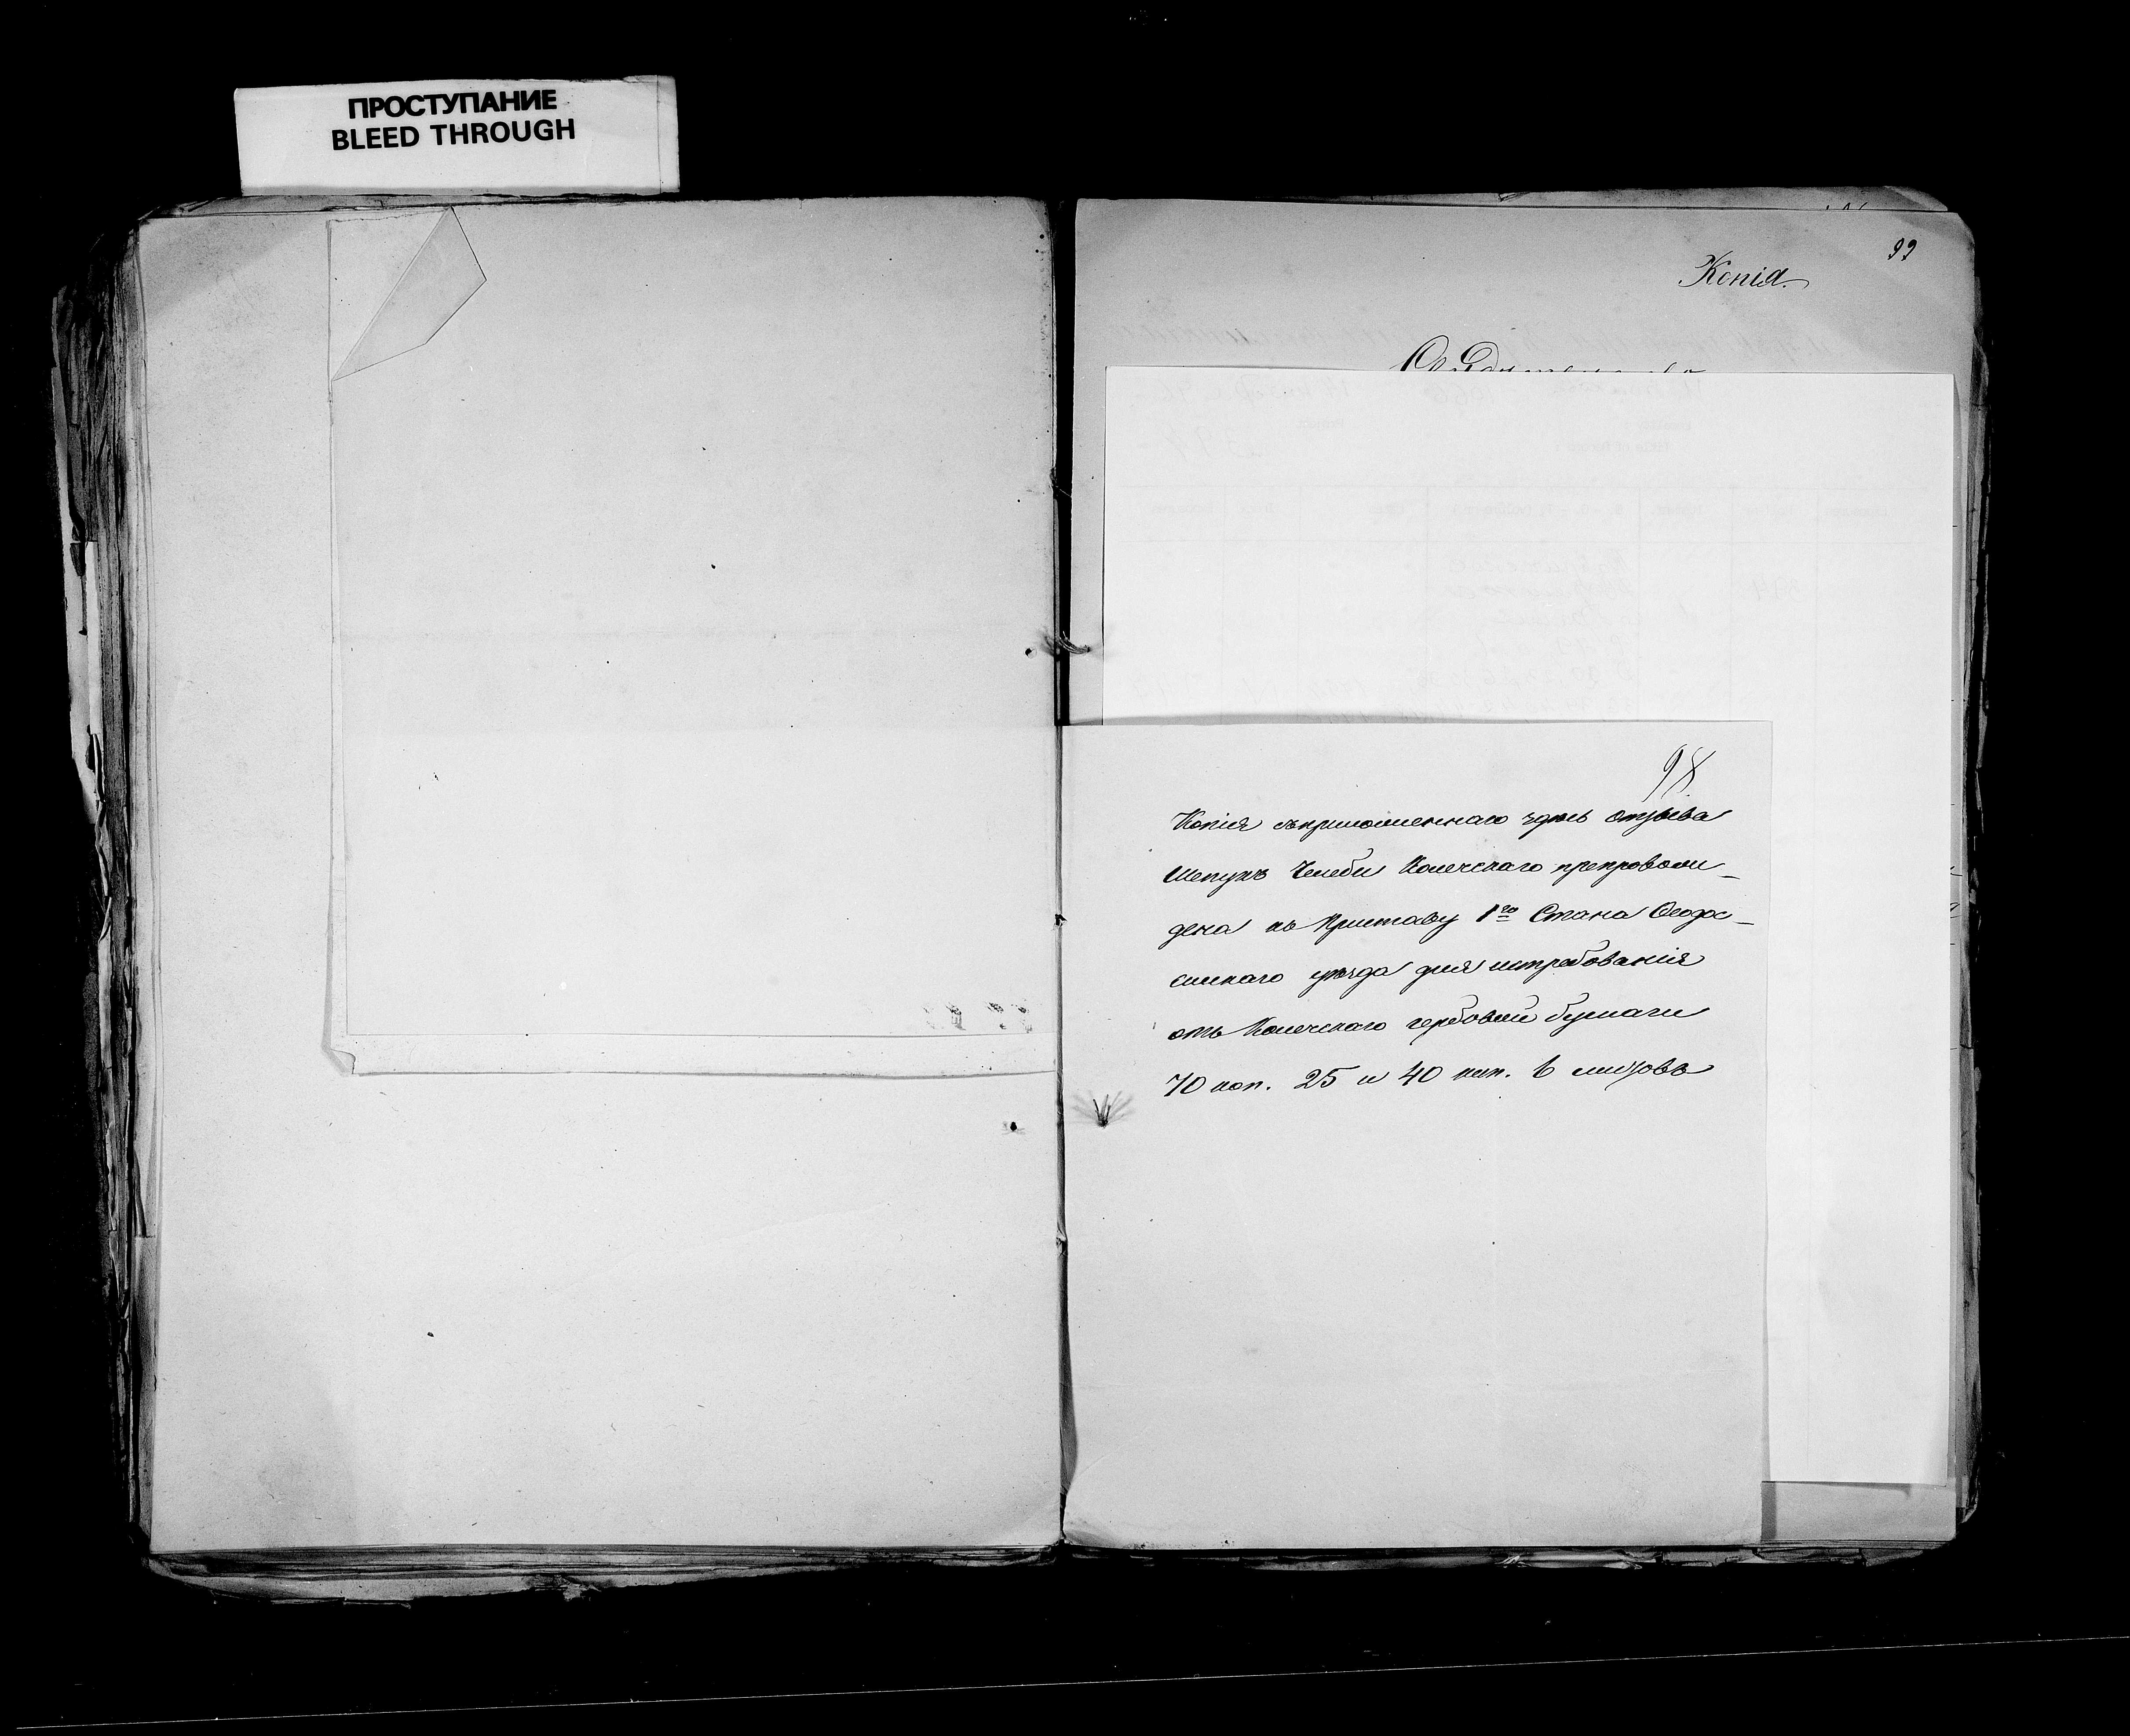 ПРОСТУПАНИЕ
BLEED THROUGH
99
Копія.
Свидѣтельство
98
Копія съ приложеннаго здѣсь отзыва
Челеби Колечскаго препровож-
дена къ Приставу 1го Стана Ѳеодо-
сійскаго уѣзда для истребованія
отъ Колечскаго гербовой бумаги
70 коп. 25 и 40 коп. 6 листовъ